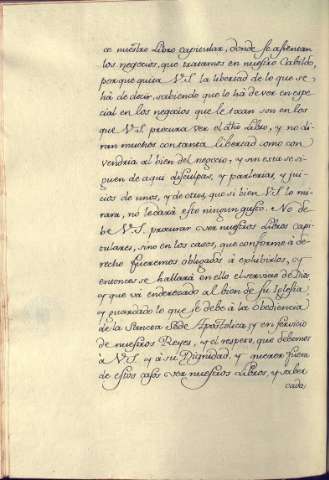 ce nuestro Libro capitular, donde se asientan
los negocios, que tratamos en nuestro Cabildo,
porque quita V.S. la libertad de lo que se
há de decir, sabiendo que lo ha de ver en espe
cial en los negocios que le tocan son en los
que V.S. procura ver el dho Libro, y no di
ran muchos con tanta libertad como con
vendria al bien del negocio, y aun esta se si
guen de aqui disculpas, y parlerias, y jui
cios de unos, y de otros, que si bien V.S. lo mi
rara, no le dará este ningun gusto. No de
be V.S. procurar ver nuestros Libros capi
tulares, sino en los casos, que conforme á de
recho fueremos obligados á exhibirlos, y
entonces se hallará en ello el servicio de Dios,
y que vá enderezado al bien de su Iglesia
y guardado lo que se debe á la obediencia
de la Sancta Sede Apostolica, y en servicio
de nuestros Reyes, y el respeto, que debemos
á V.S. y á su Dignidad, y querer fuera
de estos casos ver nuestros Libros, y saber
cada